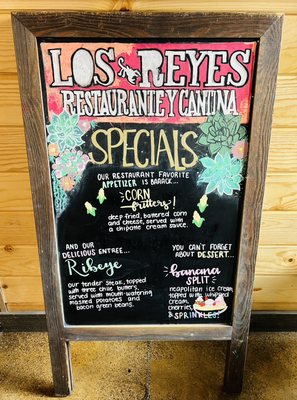 LOS REYES
RESTAURANTE Y CANTINA
SPECIALS
OUR RESTAURANT FAVORITE
APPETIZER IS BAAACK...
CORN
fritters!
deep fried, battered corn
and cheese, served with
a chipotle cream sauce.
AND OUR
DELICIOUS ENTREE...
Ribeye
our tender steak, topped
with three chile butters,
served with mouth-watering
mashed potatoes and
bacon green beans.
YOU CAN'T FORGET
ABOUT DESSERT...
banana
SPLIT
neapolitan ice cream,
topped with whipped
cream,
cherries,
& SPRINKLES!